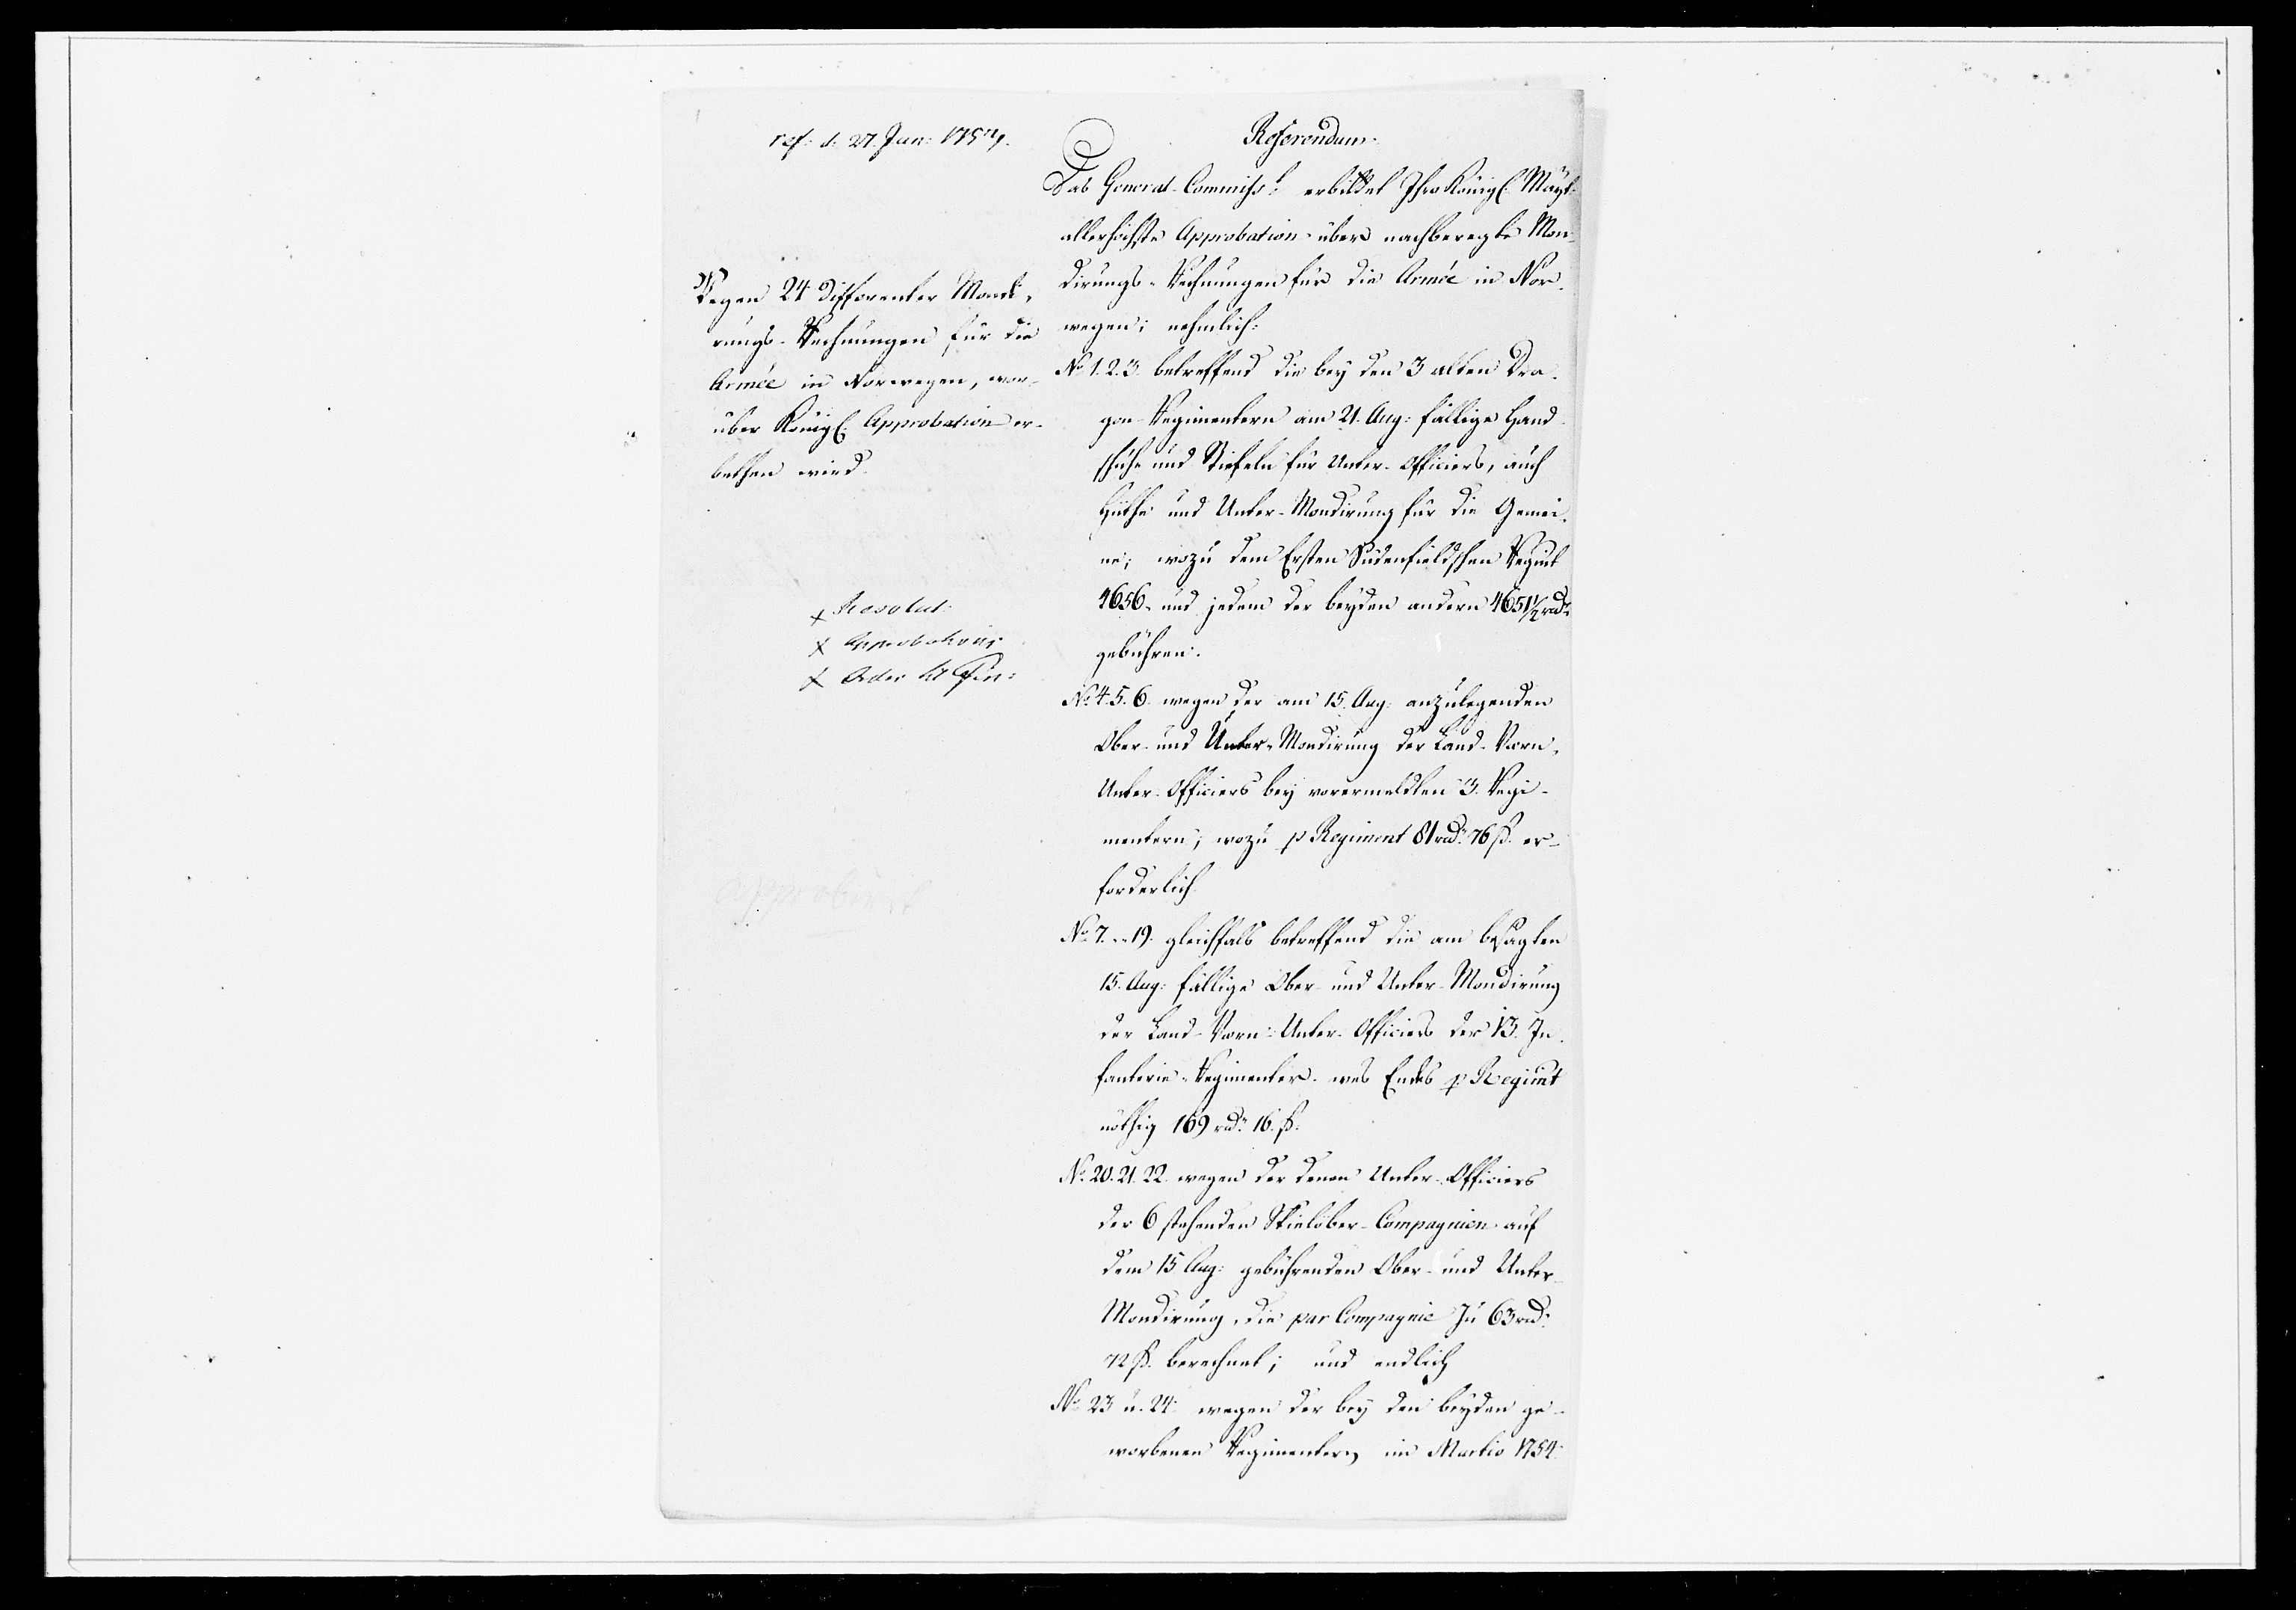 ref: d. 27. Jun: 1754.
Referendum.
Das General-Commiss:t erbittet Ihro Königl. Mayt:
allerhöchste Approbation über nachberegte Mon-
dirungs-Rechnungen für die Armée in Nor-
wegen; nehmlich:
Wegen 24 differenter Mondi-
rungs-Rechnungen für die
Armée in Norwegen, wor-
über Königl. Approbation er-
bethen wird.
No 1. 2. 3. betreffend die bey den 3 alten Dra-
gon-Regimentern am 21. Aug: fällige Hand-
schuhe und Stiefeln für Unter-Officiers, auch
Hüthe und Unter-Mondirung für die Gemei-
ne; wozu dem Ersten Südenfieldschen Regimt
4656. und jedem der beyden andern 4651 1/2 rd:
gebühren.
x Resolut:
x Approbation
x Order
No 4. 5. 6. wegen der am 15. Aug: anzulegenden
Ober- und Unter-Mondirung der Land-Värn-
Unter-Officiers bey vorermeldten 3. Regi-
mentern; wozu p Regiment 81 rd: 76 ß. er-
forderlich.
approbirt
No 7. - 19. gleichfals betreffend die am besagten
15. Aug: fällige Ober- und Unter-Mondirung
der Land-Värn-Unter-Officiers der 13. In-
fanterie-Regimenter. wes Endes p Regimt
nöthig 169 rd: 16. ß.
No 20. 21. 22. wegen der denen Unter-Officiers
der 6 stehenden Skielöber-Compagnien auf
dem 15 Aug: gebührenden Ober- und Unter-
Mondirung, die par Compagnie zu 63 rd:
72 ß. berechnet; und endlich
No 23 u. 24. wegen der bey den beyden ge-
worbenen Regimentern im Martio 1754.